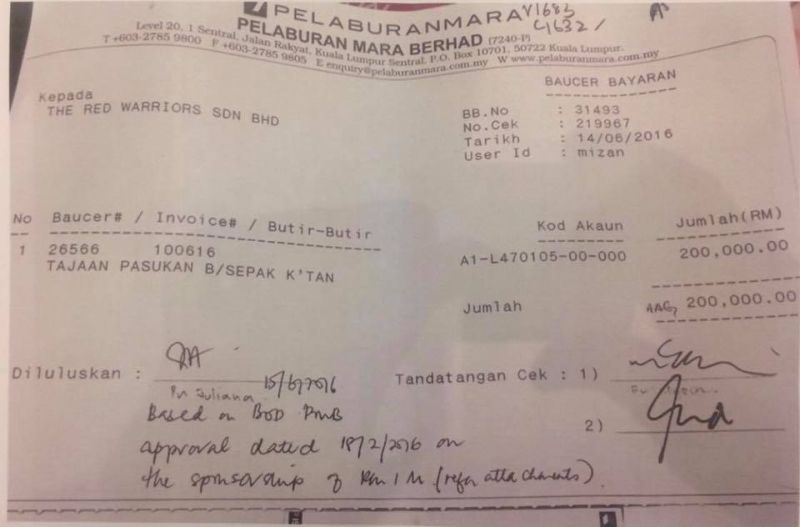 PELABURANMARA
PELABURAN MARA BERHAD (7240-P)
Level 20, 1 Sentral, Jalan Rakyat, Kuala Lumpur Sentral, P.O. Box 10701, 50722 Kuala Lumpur.
T +603-2785 9800 F +603-2785 9805 E enquiry@pelaburanmara.com.my W www.pelaburanmara.com.my
BAUCER BAYARAN
Kepada
THE RED WARRIORS SDN BHD
BB.No : 31493
No.Cek : 219967
Tarikh : 14/06/2016
User Id : mizan
No Baucer# / Invoice# / Butir-Butir Kod Akaun Jumlah(RM)
1 26566 100616 A1-L470105-00-000 200,000.00
TAJAAN PASUKAN B/SEPAK K'TAN
Jumlah 200,000.00
Diluluskan : 15/6/2016 Tandatangan Cek : 1)
Pn Juliana
Based on BOD PMB
2)
approval dated 18/2/2016 on
the sponsorship of RM 1 M (refer attachments).